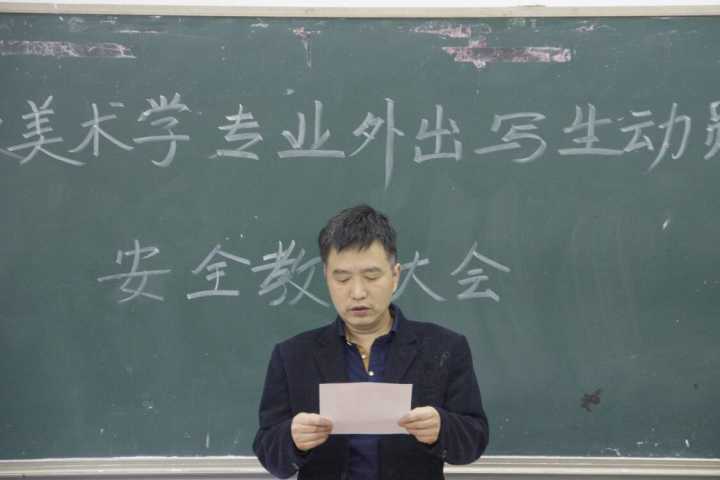 美术学专业外出写生动员
安全教大会